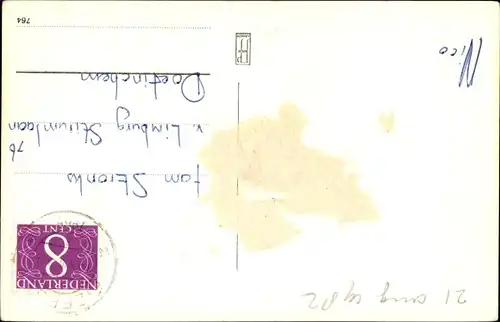 21 aug 1982
8
CENT
NEDERLAND
fam Stronks
v. Limburg Stirumlaan
76
Doetinchem
Nico
764